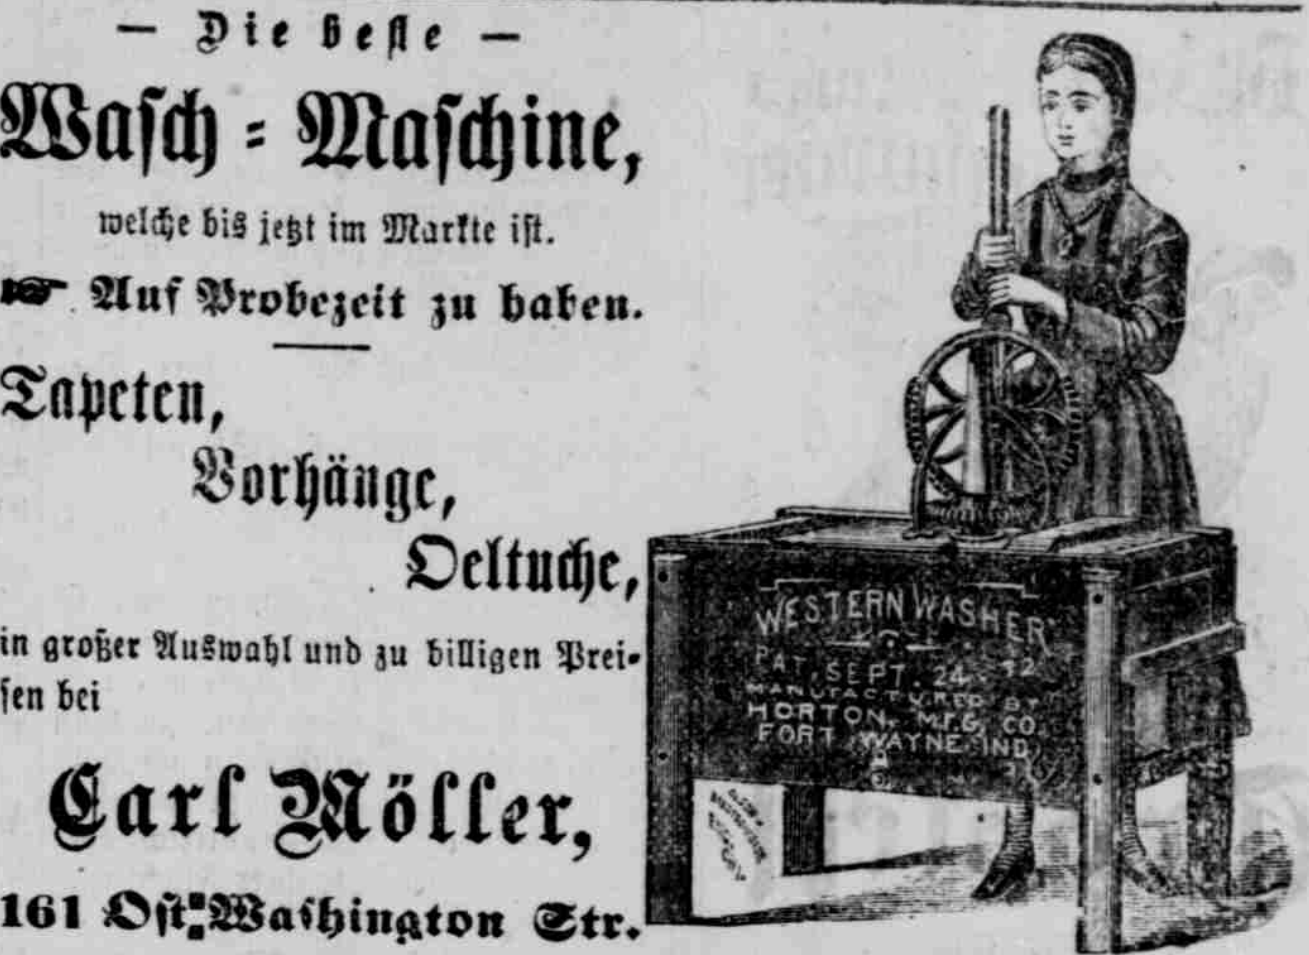 — Die beste —
Wasch - Maschine,
welche bis jetzt im Markte ist.
☞ Auf Probezeit zu haben.
Tapeten,
Vorhänge,
Oeltuche,
in großer Auswahl und zu billigen Prei-
sen bei
Carl Möller,
161 Ost-Washington Str.
WESTERN WASHER
PAT. SEPT. 24. 72
MANUFACTURED BY
HORTON. MFG, CO.
FORT WAYNE IND